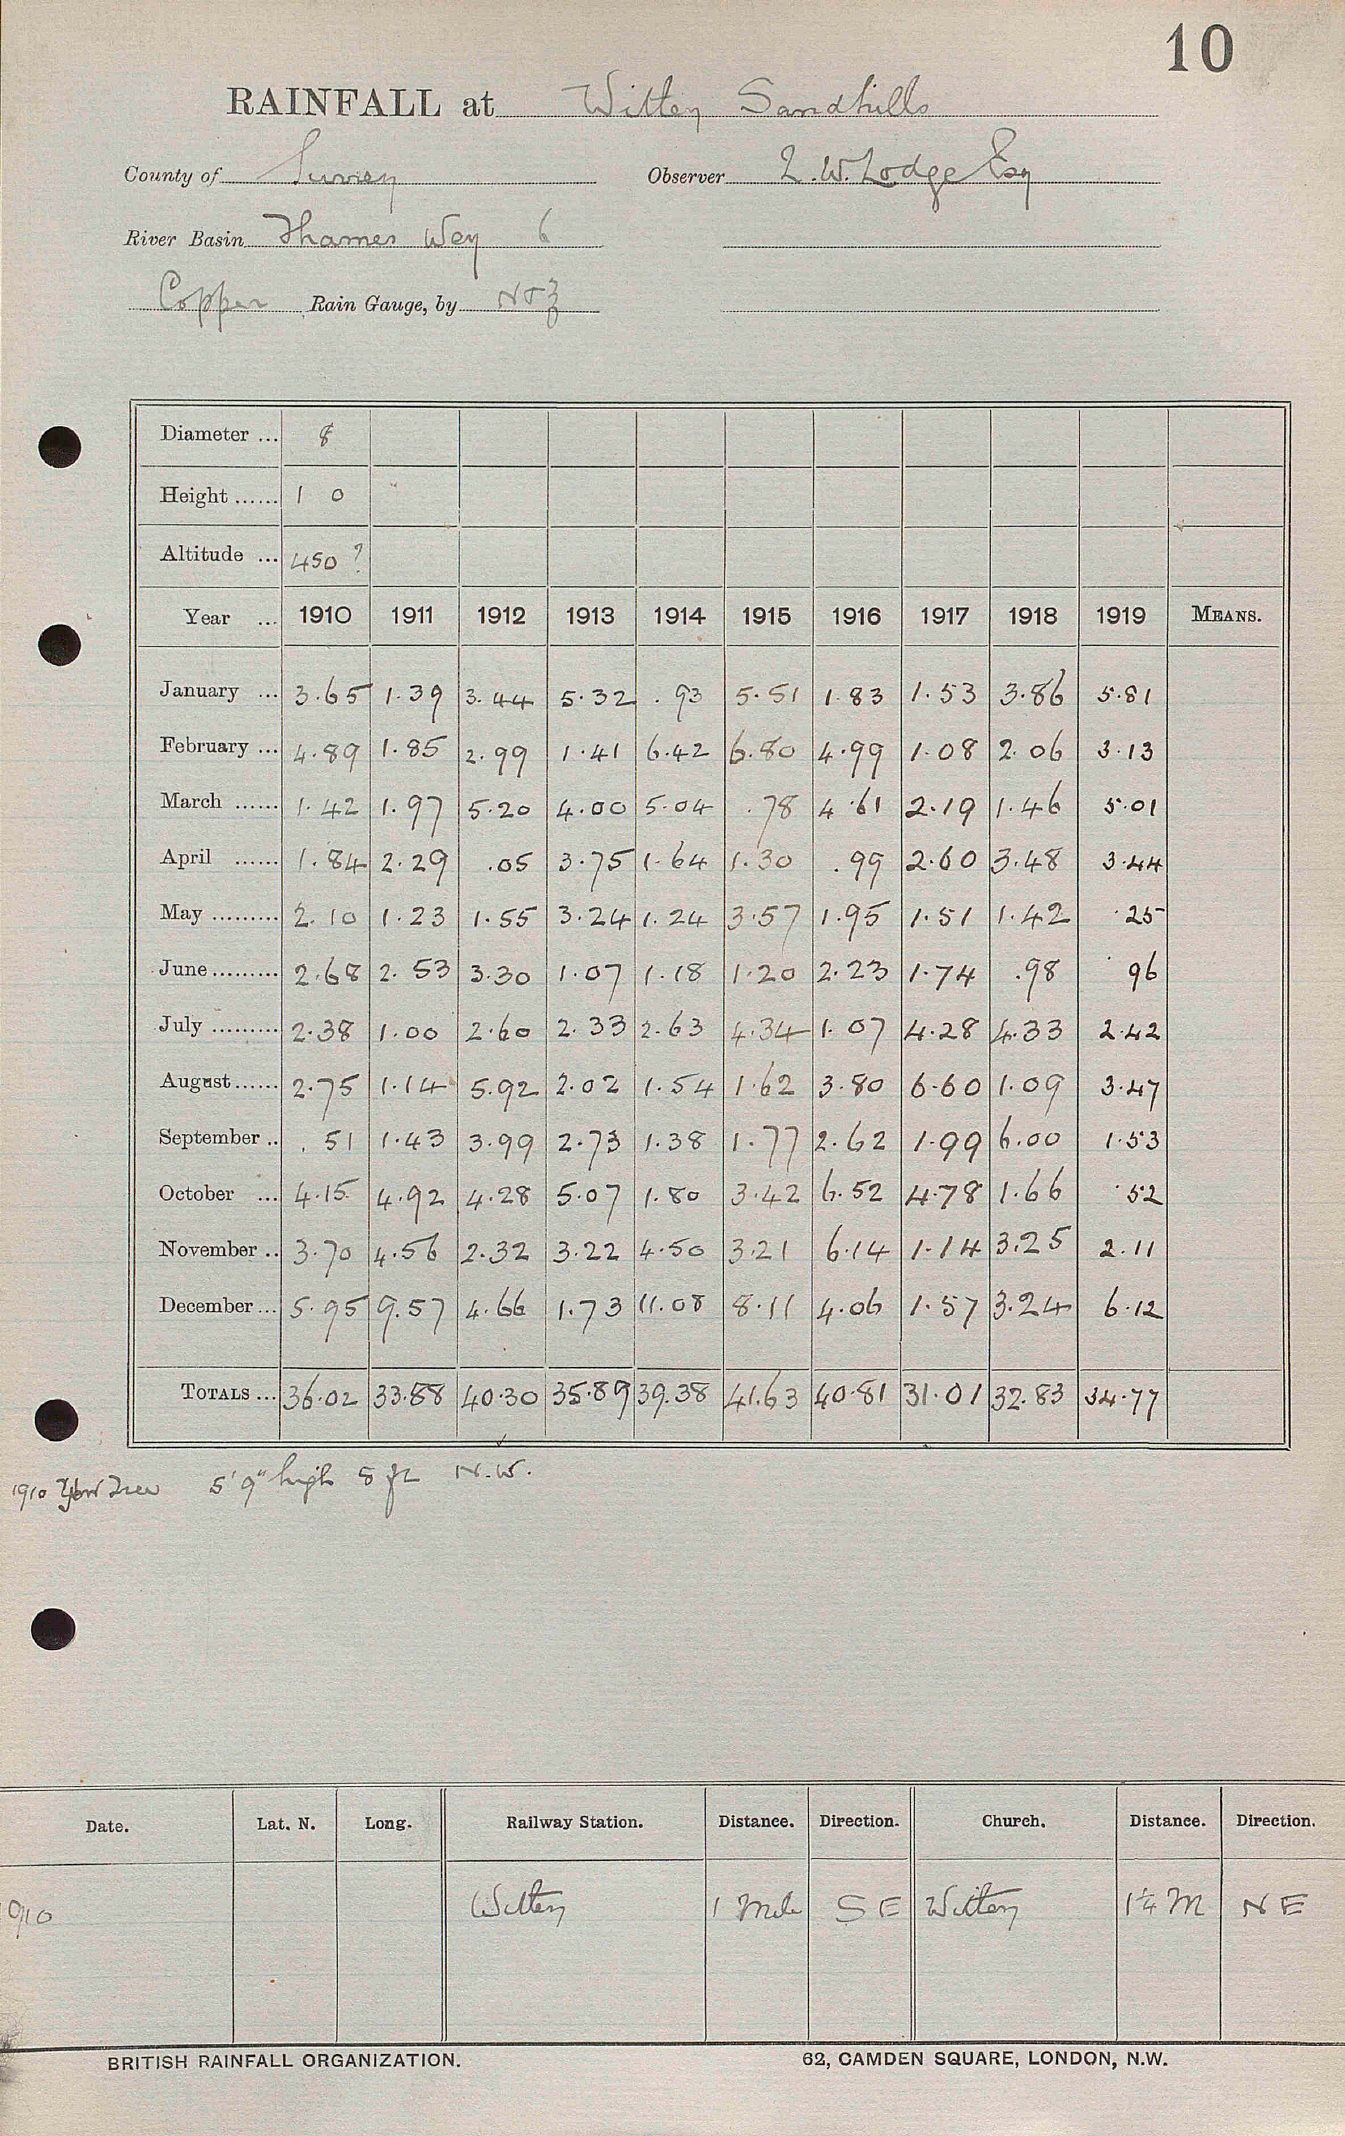 10
RAINFALL at Witley Sandhills
County of Surrey Observer L.W. Lodge Esq
River Basin Thames Wey 6
Copper Rain Gauge, by N & Z
Diameter ... 8
Height ...... 1 0
Altitude ... 450 ?
Year ... 1910 1911 1912 1913 1914 1915 1916 1917 1918 1919 MEANS.
January ... 3.65 1.39 3.44 5.32 .93 5.51 1.83 1.53 3.86 5.81
February ... 4.89 1.85 2.99 1.41 6.42 6.80 4.99 1.08 2.06 3.13
March ...... 1.42 1.97 5.20 4.00 5.04 .78 4.61 2.19 1.46 5.01
April ...... 1.84 2.29 .05 3.75 1.64 1.30 .99 2.60 3.48 3.44
May ......... 2.10 1.23 1.55 3.24 1.24 3.57 1.95 1.51 1.42 .25
June ......... 2.68 2.53 3.30 1.07 1.18 1.20 2.23 1.74 .98 .96
July ......... 2.38 1.00 2.60 2.33 2.63 4.34 1.07 4.28 4.33 2.42
August ...... 2.75 1.14 5.92 2.02 1.54 1.62 3.80 6.60 1.09 3.47
September .. .51 1.43 3.99 2.73 1.38 1.77 2.62 1.99 6.00 1.53
October ... 4.15 4.92 4.28 5.07 1.80 3.42 6.52 4.78 1.66 .52
November .. 3.70 4.56 2.32 3.22 4.50 3.21 6.14 1.14 3.25 2.11
December ... 5.95 9.57 4.66 1.73 11.08 8.11 4.06 1.57 3.24 6.12
TOTALS ... 36.02 33.88 40.30 35.89 39.38 41.63 40.81 31.01 32.83 34.77
1910 Yew Tree 5'9" high 8 ft N.W.
Date. Lat. N. Long. Railway Station. Distance. Direction. Church. Distance. Direction.
1910 Witley 1 Mile SE Witley 1¼ M NE
BRITISH RAINFALL ORGANIZATION. 62, CAMDEN SQUARE, LONDON, N.W.